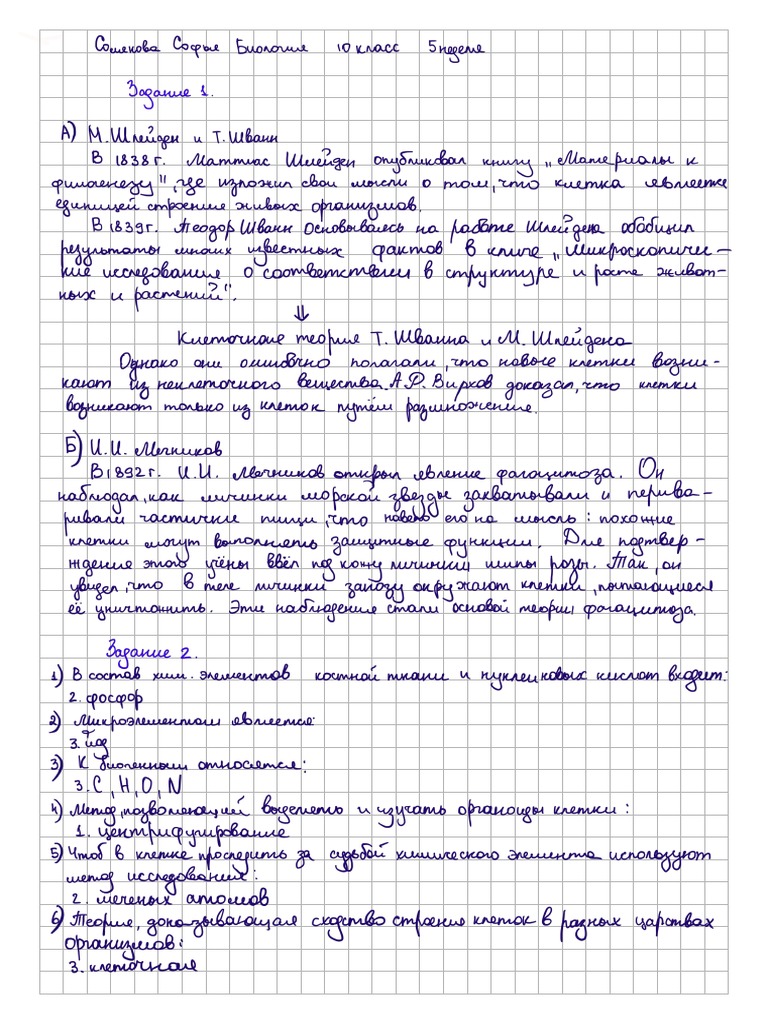 Сомекова Софья Биология 10 класс 5 неделя
Задание 1.
А) М. Шлейден и Т. Шванн
В 1838 г. Маттиас Шлейден опубликовал книгу „Материалы к
филогенезу", где изложил свои мысли о том, что клетка является
единицей строения живых организмов.
В 1839 г. Теодор Шванн основываясь на работе Шлейдена обобщил
результаты многих известных фактов в книге „Микроскопичес-
кие исследования о соответствии в структуре и росте живот-
ных и растений".
⇓
Клеточная теория Т. Шванна и М. Шлейдена
Однако они ошибочно полагали, что новые клетки возни-
кают из неклеточного вещества. А.Ф. Вирхов доказал, что клетки
возникают только из клеток путём размножения.
Б) И.И. Мечников
В 1892 г. И.И. Мечников открыл явление фагоцитоза. Он
наблюдал, как личинки морской звезды захватывали и перива-
ривали частички пищи, что навело его на мысль: похожие
клетки могут выполнять защитные функции. Для подтвер-
ждения этого учёны ввёл под кожу личинки шипы розы. Так, он
увидел, что в теле личинки занозу окружают клетки, пытающиеся
её уничтожить. Эти наблюдения стали основой теории фагоцитоза.
Задание 2.
1) В состав хим. элементов костной ткани и нуклеиновых кислот входит:
2. фосфор
2) Микроэлементом является:
3. йод
3) К биогенным относятся:
3. C, H, O, N
4) Метод, позволяющий выделять и изучать органоиды клетки:
1. центрифугирование
5) Чтоб в клетке проследить за судьбой химического элемента используют
метод исследования:
2. меченых атомов
6) Теория, доказывающая сходство строения клеток в разных царствах
организмов:
3. клеточная